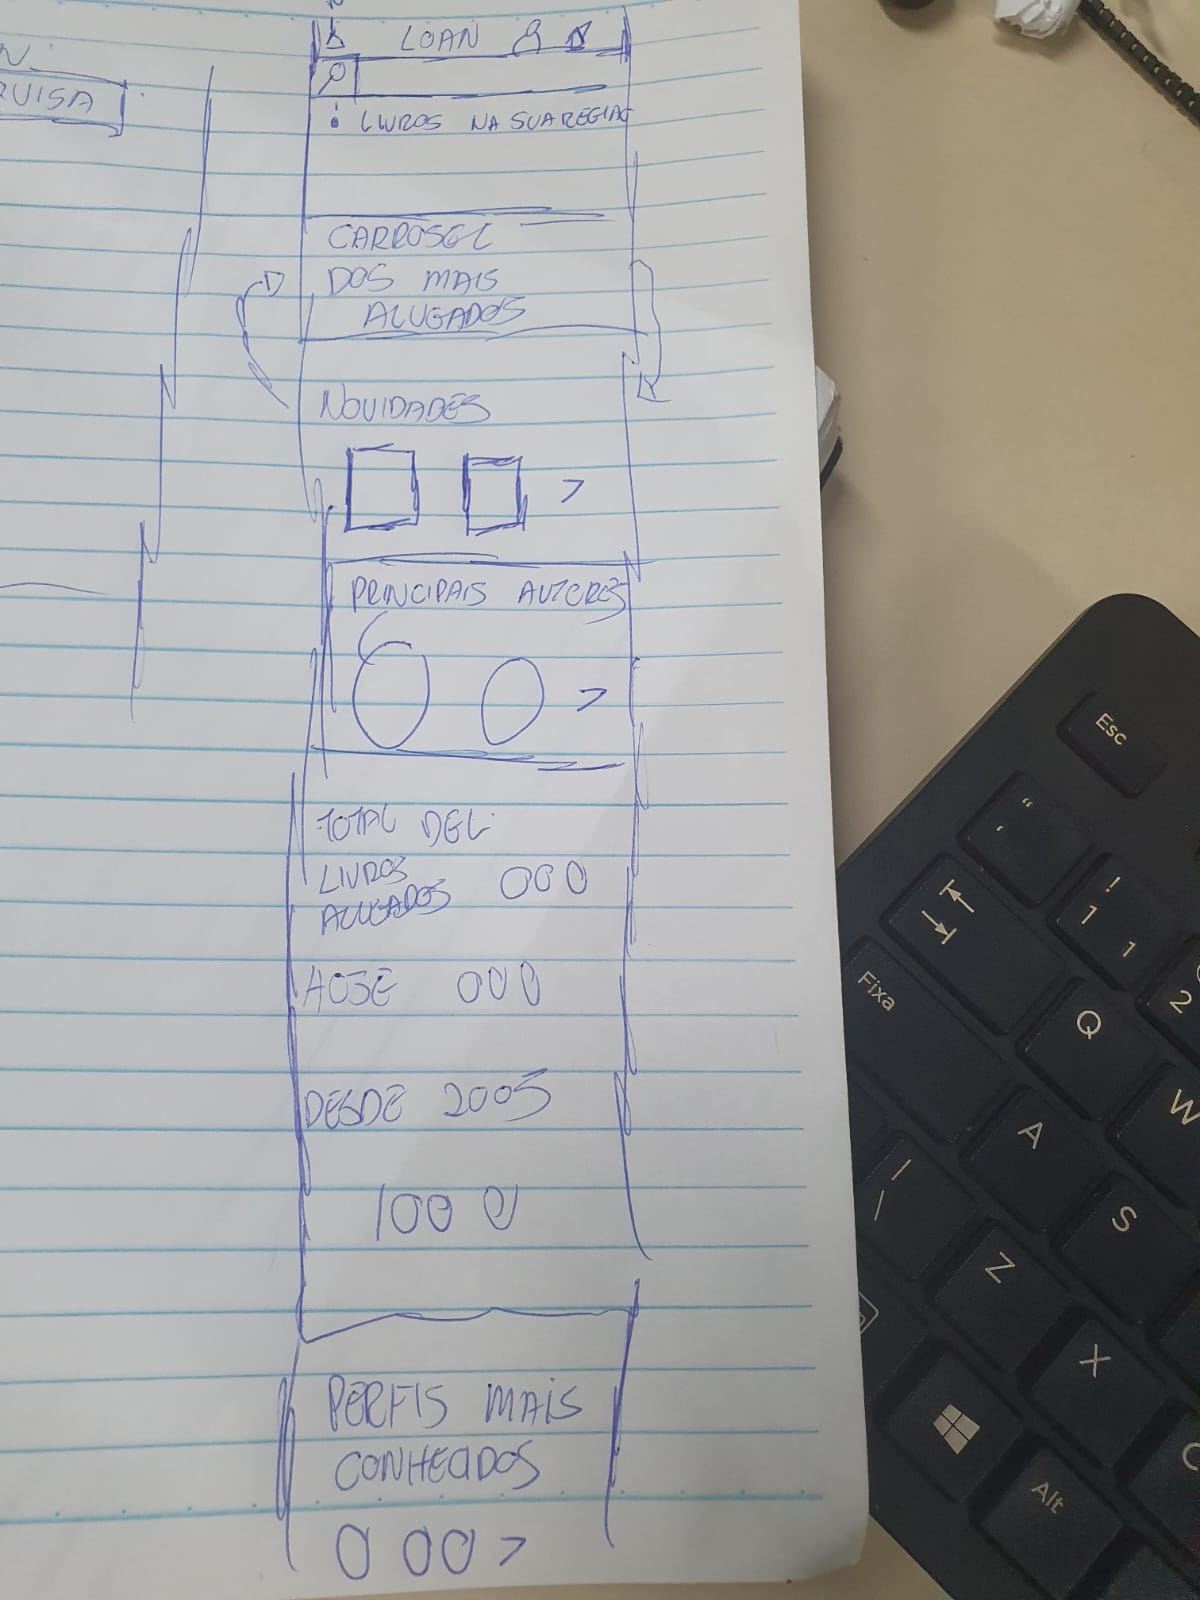 LOAN
LIVROS NA SUA REGIAO
CARROSEL
DOS MAIS
ALUGADOS
NOVIDADES
>
PRINCIPAIS AUTORES
>
TOTAL DEL
LIVROS
ALUGADOS 000
HOJE 000
DESDE 2005
1000
PERFIS MAIS
CONHECIDOS
000 >
Esc
! 1 1
2
Fixa
Q
W
A
S
Z
X
C
Alt